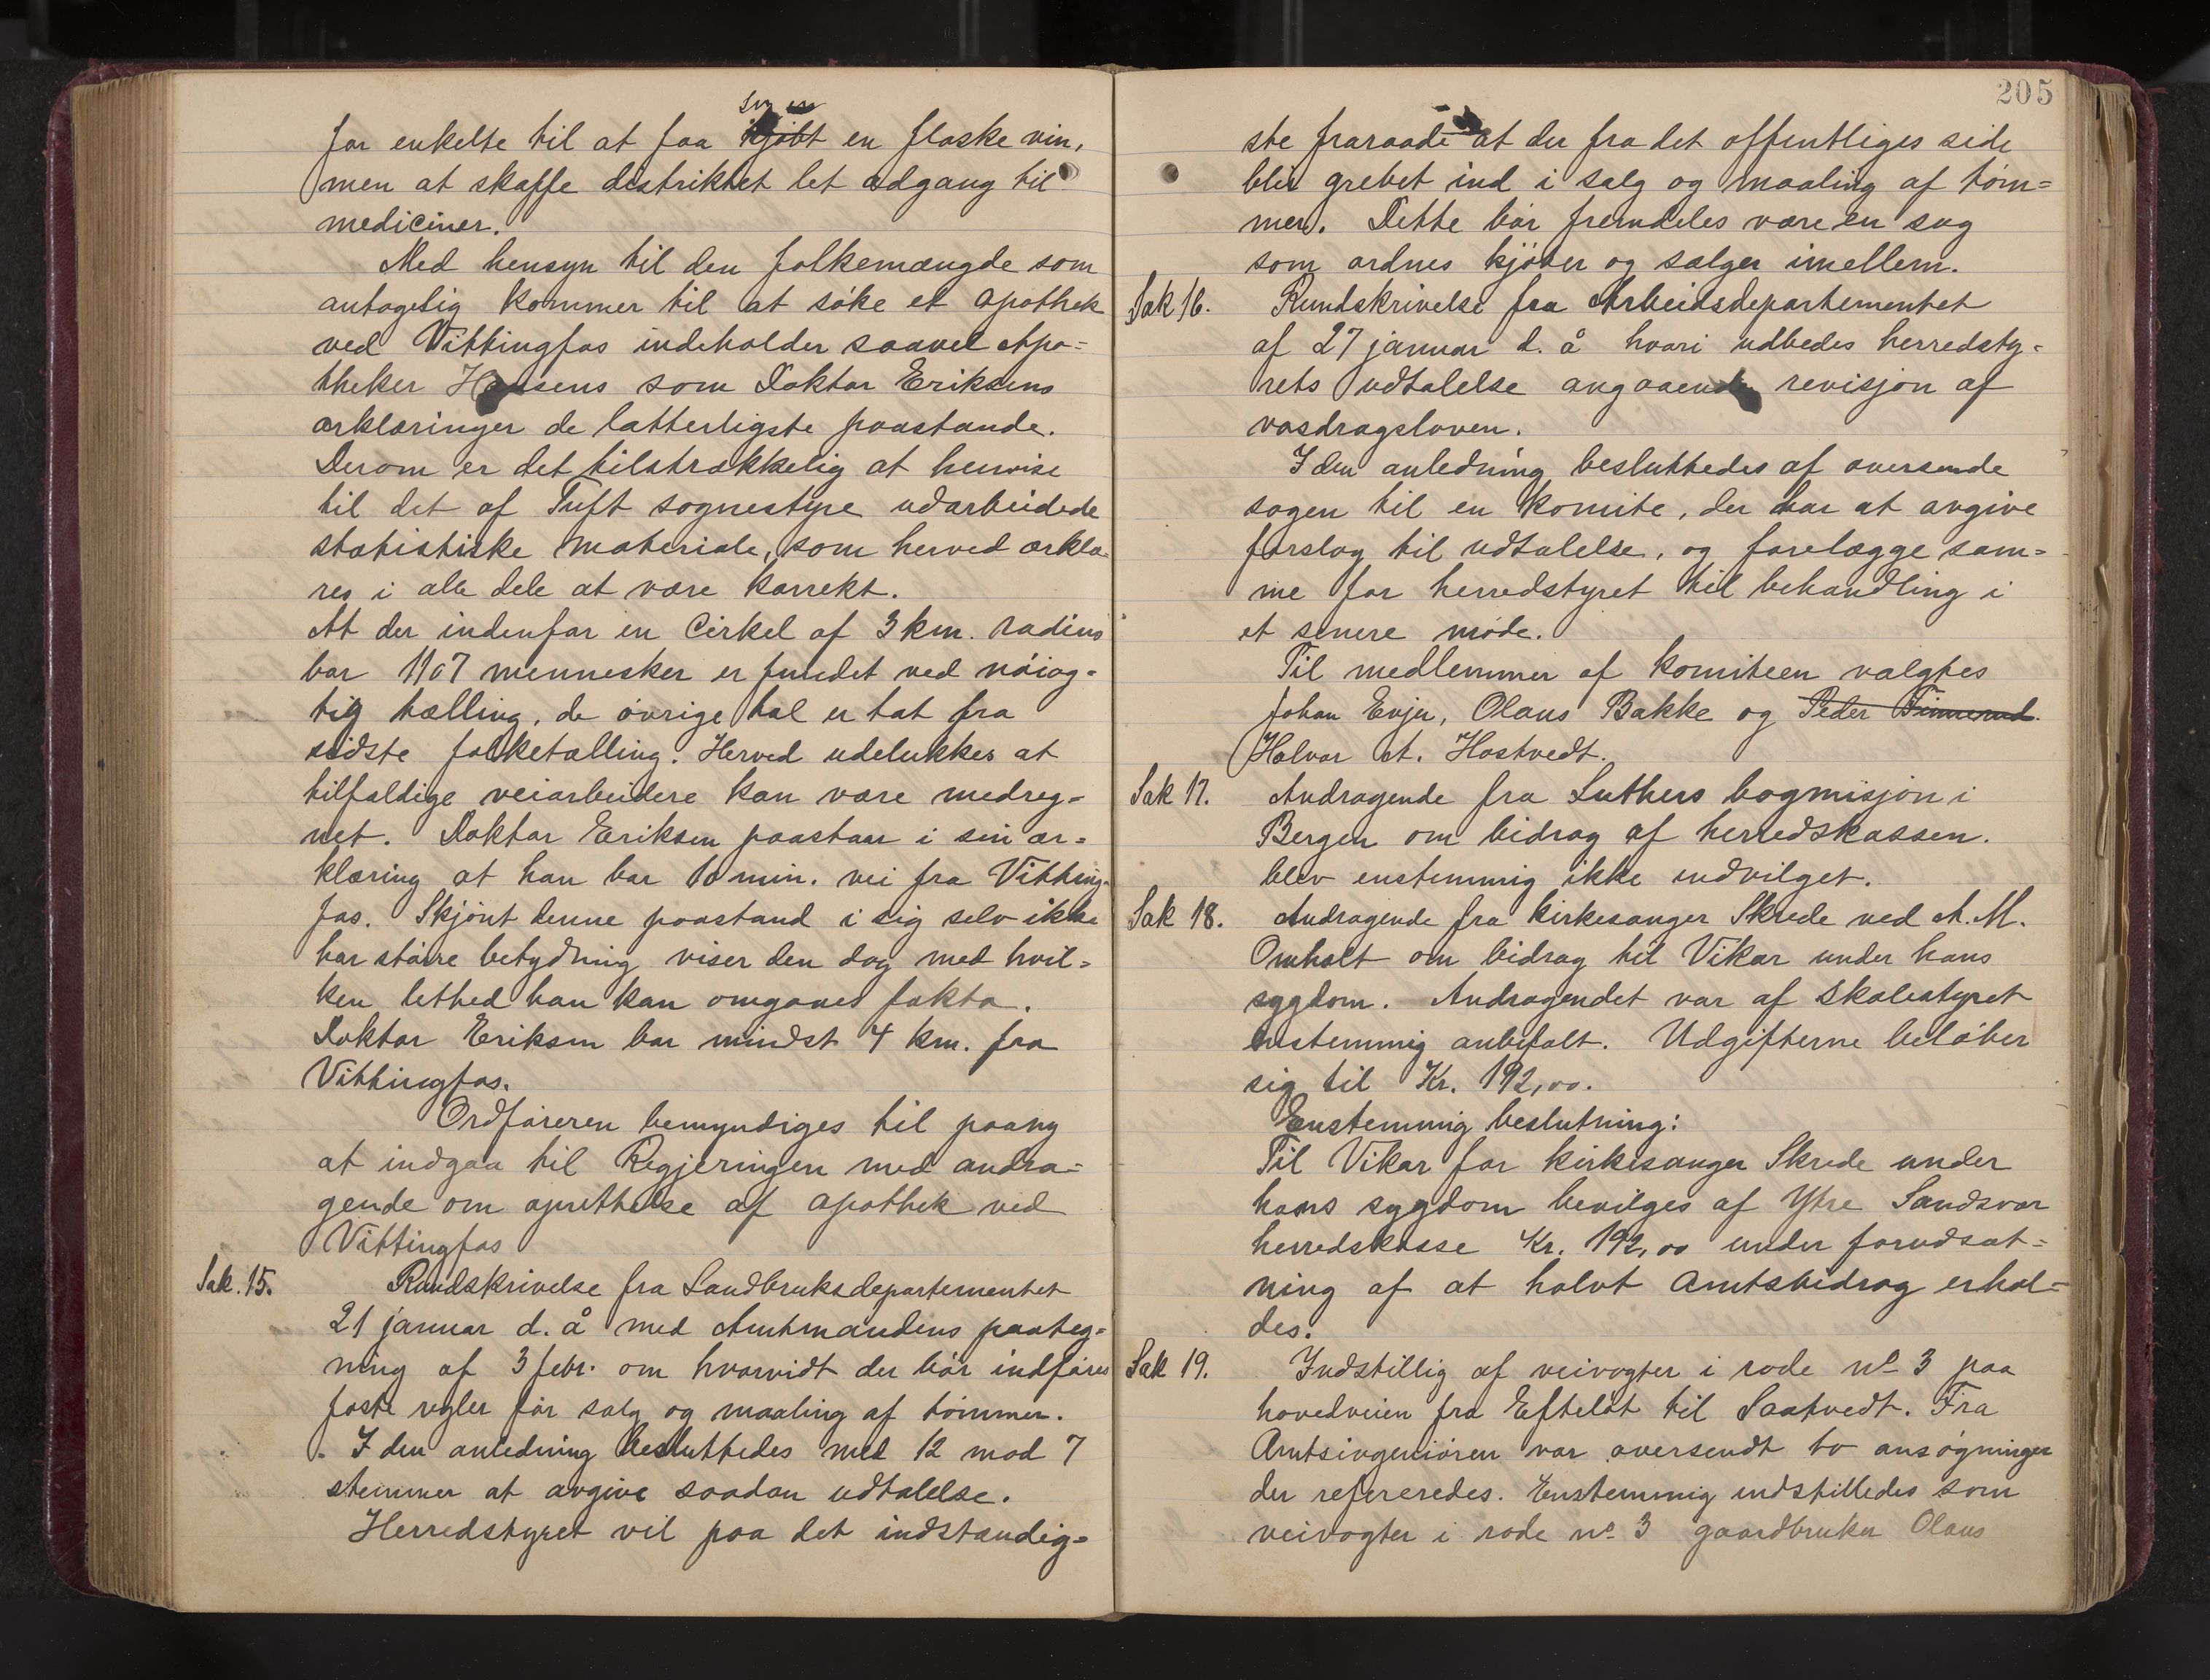 for enkelte til at faa sig en flaske vin,
men at skaffe distriktet let adgang til
mediciner.
Med hensyn til den folkemængde som
antagelig kommer til at søke et apothek
ved Vittingfos indeholder saavel Apo=
theker Hansens som Doktor Eriksens
ærklæringer de latterligste paastande.
Derom er det tilstrækkelig at henvise
til det af Tuft sognestyre udarbeidede
statistiske materiale, som herved ærklæ
res i alle dele at være korrekt.
At der indenfor en Cirkel af 3 km. radius
bor 1107 mennesker er fundet ved nøiag=
tig tælling, de øvrige tal er tat fra
sidste folketælling. Herved udelukkes at
tilfældige veiarbeidere kan være medreg=
net. Doktor Eriksen paastaar i sin ær=
klæring at han bor 10 min. vei fra Vitting
fos. Skjønt denne paastand i sig selv ikke
har større betydning viser den dog med hvil=
ken lethed han kan omgaaes fakta.
Doktor Eriksen bor mindst 4 km. fra
Vittingfos.
Ordføreren bemyndiges til paany
at indgaa til Regjeringen med andra=
gende om oprettelse af apothek ved
Vittingfos
Sak. 15. Rundskrivelse fra Landbruksdepartementet
21 januar d. å med Amtmandens paateg=
ning af 3 febr. om hvorvidt der bør indføres
faste regler for salg og maaling af tømmer.
I den anledning besluttedes med 12 mod 7
stemmer at avgive saadan udtalelse.
Herredstyret vil paa det indstændig=
205
ste fraraade at der fra det offentliges side
blir grebet ind i salg og maaling af tøm=
mer. Dette bør fremdeles være en sag
som ordnes kjøber og sælger imellem.
Sak 16. Rundskrivelse fra Arbeidsdepartementet
af 27 januar d. å hvori udbedes herredsty=
rets udtalelse angaaende revisjon af
vasdragsloven.
I den anledning besluttedes af oversende
sagen til en komite, der har at avgive
forslag til udtalelse, og forelægge sam=
me for herredstyret til behandling i
et senere møde.
Til medlemmer af komiteen valgtes
Johan Evju, Olaus Bakke og Peder Timmerud.
Halvor A. Hostvedt.
Sak 17. Andragende fra Luthers bogmisjon i
Bergen om bidrag af herredskassen.
blev enstemmig ikke indvilget.
Sak 18. Andragende fra kirkesanger Skrede ved A. M.
Omholt om bidrag til Vikar under hans
sygdom. Andragendet var af skolestyret
enstemmig anbefalt. Udgifterne beløber
sig til Kr. 192,00.
Enstemmig beslutning:
Til Vikar for kirkesanger Skrede under
hans sygdom bevilges af Ytre Sandsvær
herredskasse Kr. 192,00 under forudsæt=
ning af at halvt Amtsbidrag erhol=
des.
Sak 19. Indstillig af veivogter i rode no 3 paa
hovedveien fra Efteløt til Saatvedt. Fra
Amtsingeniøren var oversendt to ansøgninger
der refereredes. Enstemmig indstilledes som
veivogter i rode no 3 gaardbruker Olaus